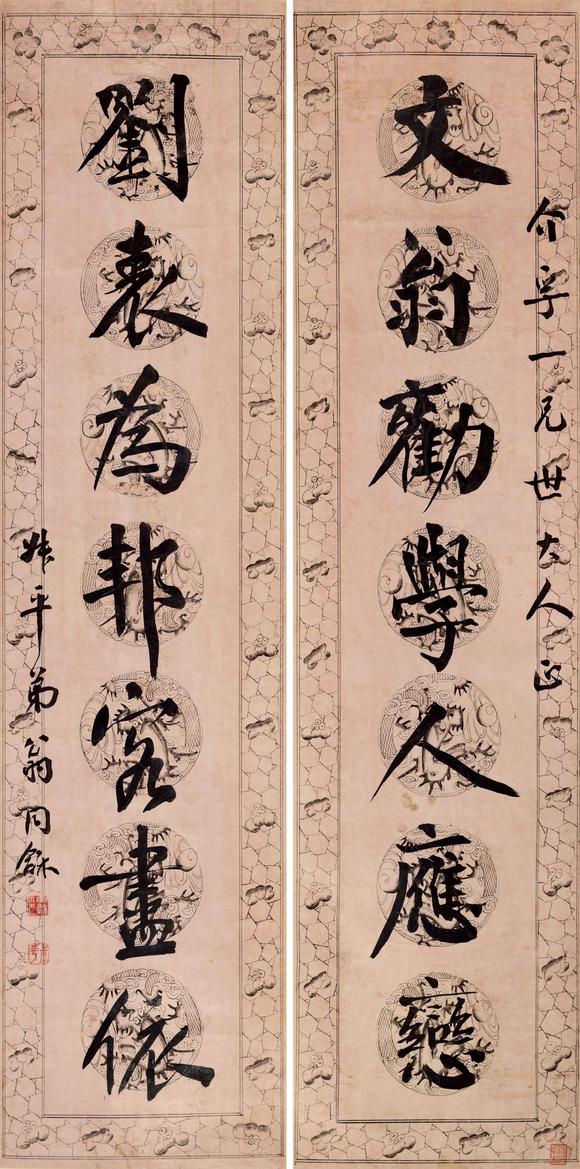 介孚一兄世大人正
文翁勸學人應戀
劉表為邦客盡依
叔平弟翁同龢